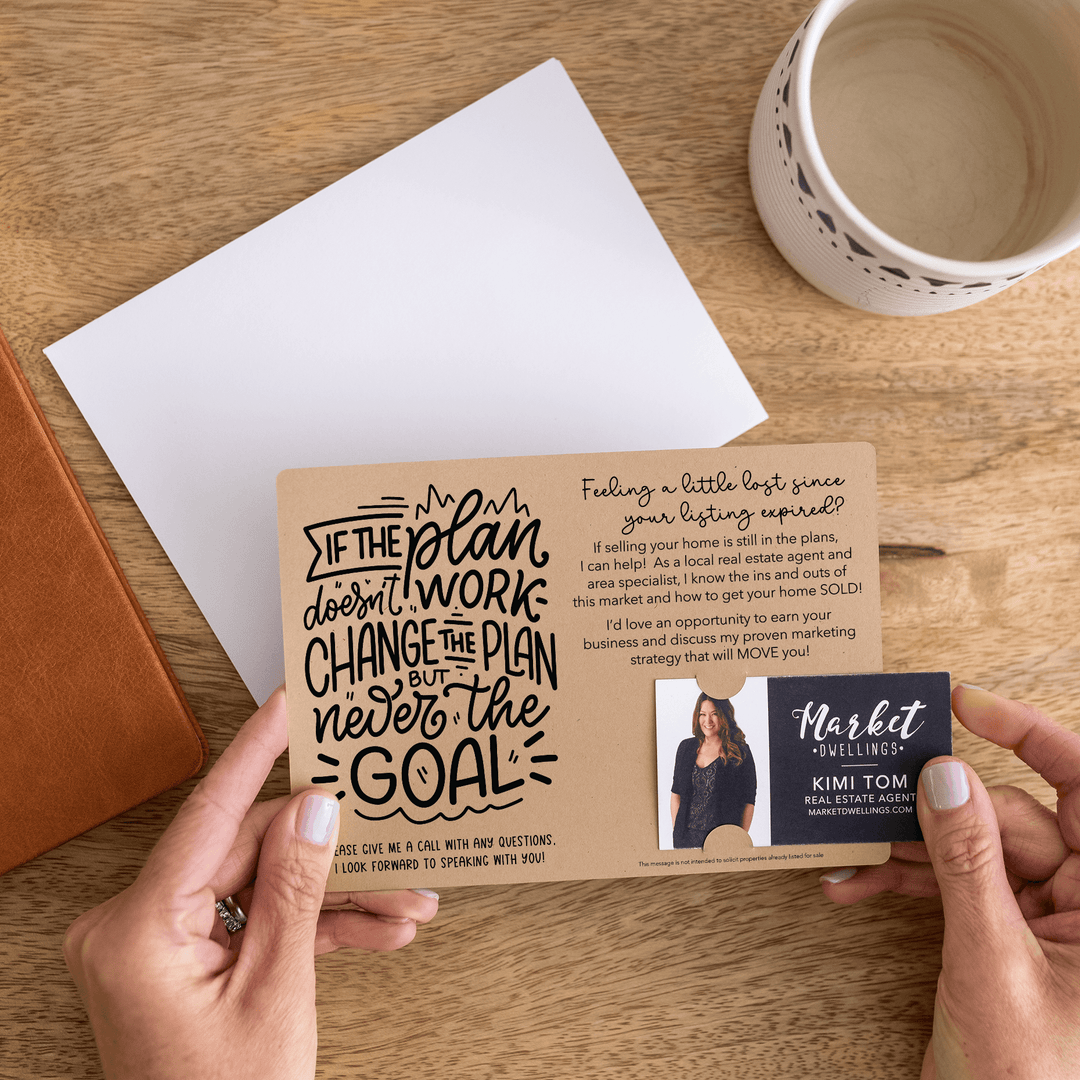 IF THE plan
doesn't WORK
CHANGE THE PLAN
BUT
never the
GOAL
EASE GIVE ME A CALL WITH ANY QUESTIONS.
I LOOK FORWARD TO SPEAKING WITH YOU!
Feeling a little lost since
your listing expired?
If selling your home is still in the plans,
I can help! As a local real estate agent and
area specialist, I know the ins and outs of
this market and how to get your home SOLD!
I'd love an opportunity to earn your
business and discuss my proven marketing
strategy that will MOVE you!
Market
•DWELLINGS•
KIMI TOM
REAL ESTATE AGENT
MARKETDWELLINGS.COM
This message is not intended to solicit properties already listed for sale